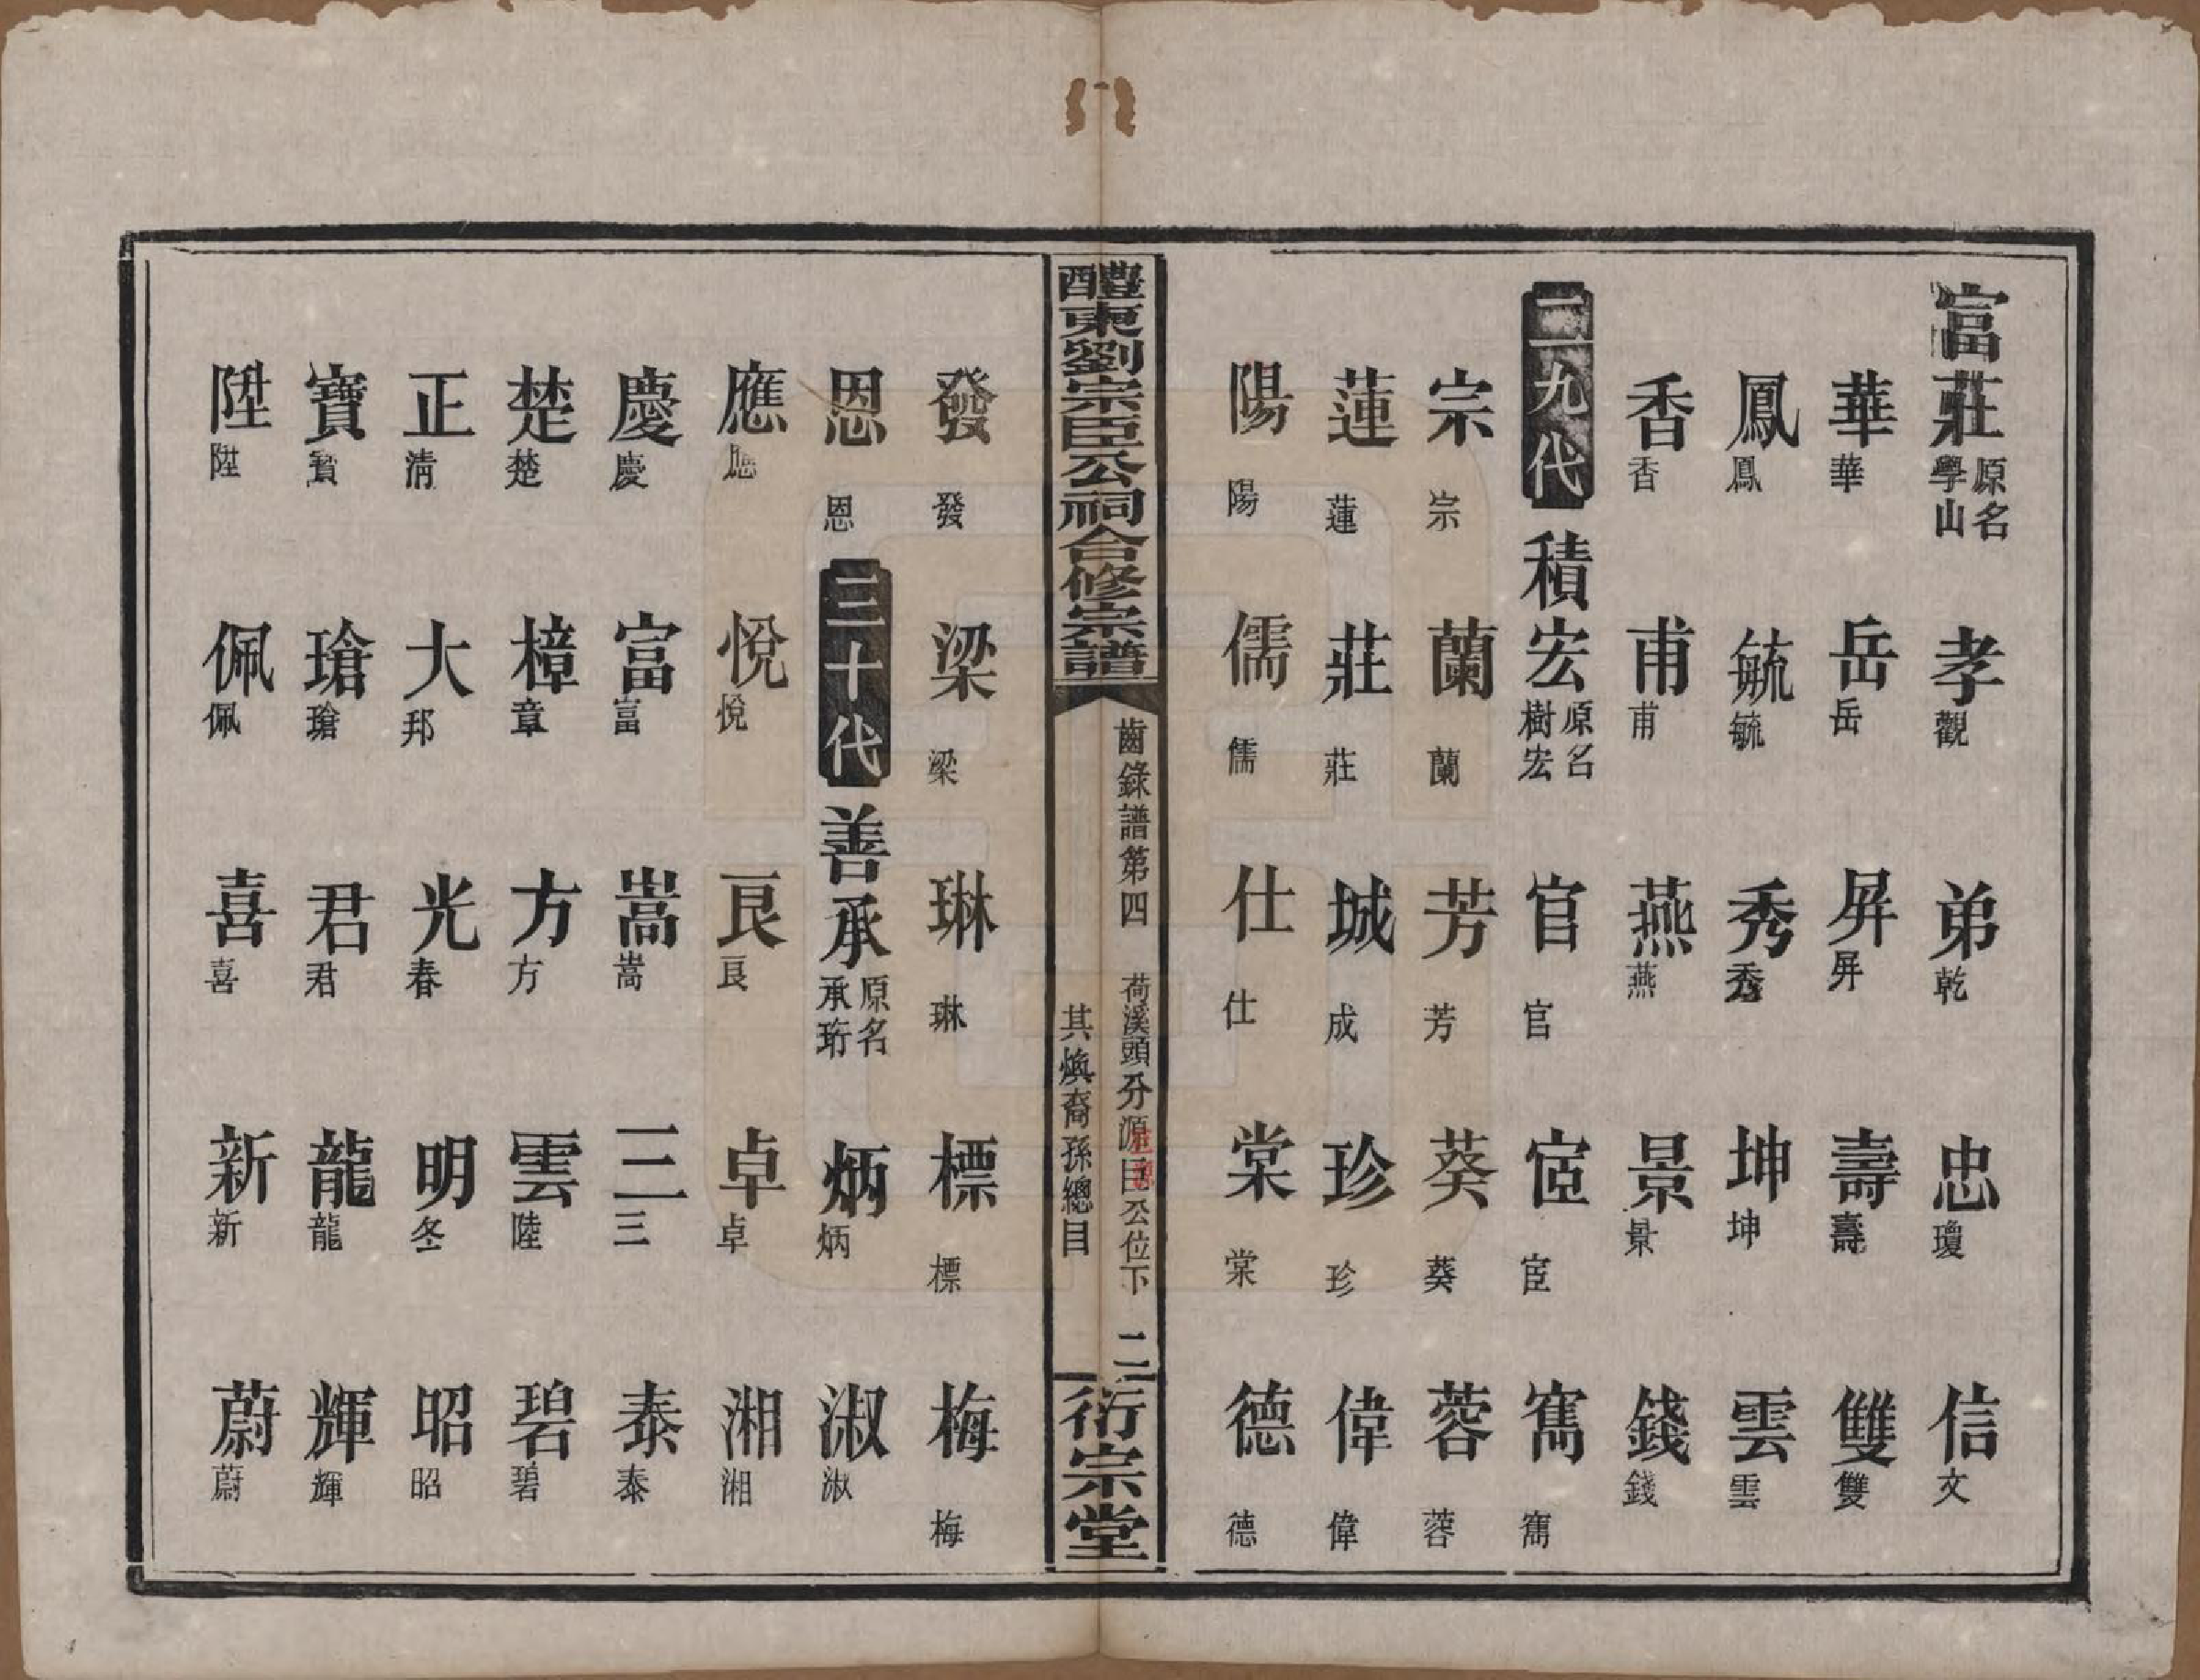 富莊原名學山 孝觀 弟乾 忠瓊 信文
華華 岳岳 屏屏 壽壽 雙雙
鳳鳳 毓毓 秀秀 坤坤 雲雲
香香 甫甫 燕燕 景景 錢錢
二九代 積宏原名樹宏 官官 宧宧 寯寯
宗宗 蘭蘭 芳芳 葵葵 蓉蓉
蓮蓮 莊莊 城成 珍珍 偉偉
陽陽 儒儒 仕仕 棠棠 德德
醴東劉宗臣公祠合修宗譜
齒錄譜第四 荷溪頭分源 公位下
其煥裔孫總目
二
衍宗堂
發發 梁梁 琳琳 標標 梅梅
恩恩 三十代 善承原名承珩 炳炳 淑淑
應應 悅悅 良良 卓卓 湘湘
慶慶 富富 嵩嵩 三三 泰泰
楚楚 樟章 方方 雲陸 碧碧
正清 大邦 光春 明冬 昭昭
寶寶 瑲瑲 君君 龍龍 輝輝
陞陞 佩佩 喜喜 新新 蔚蔚